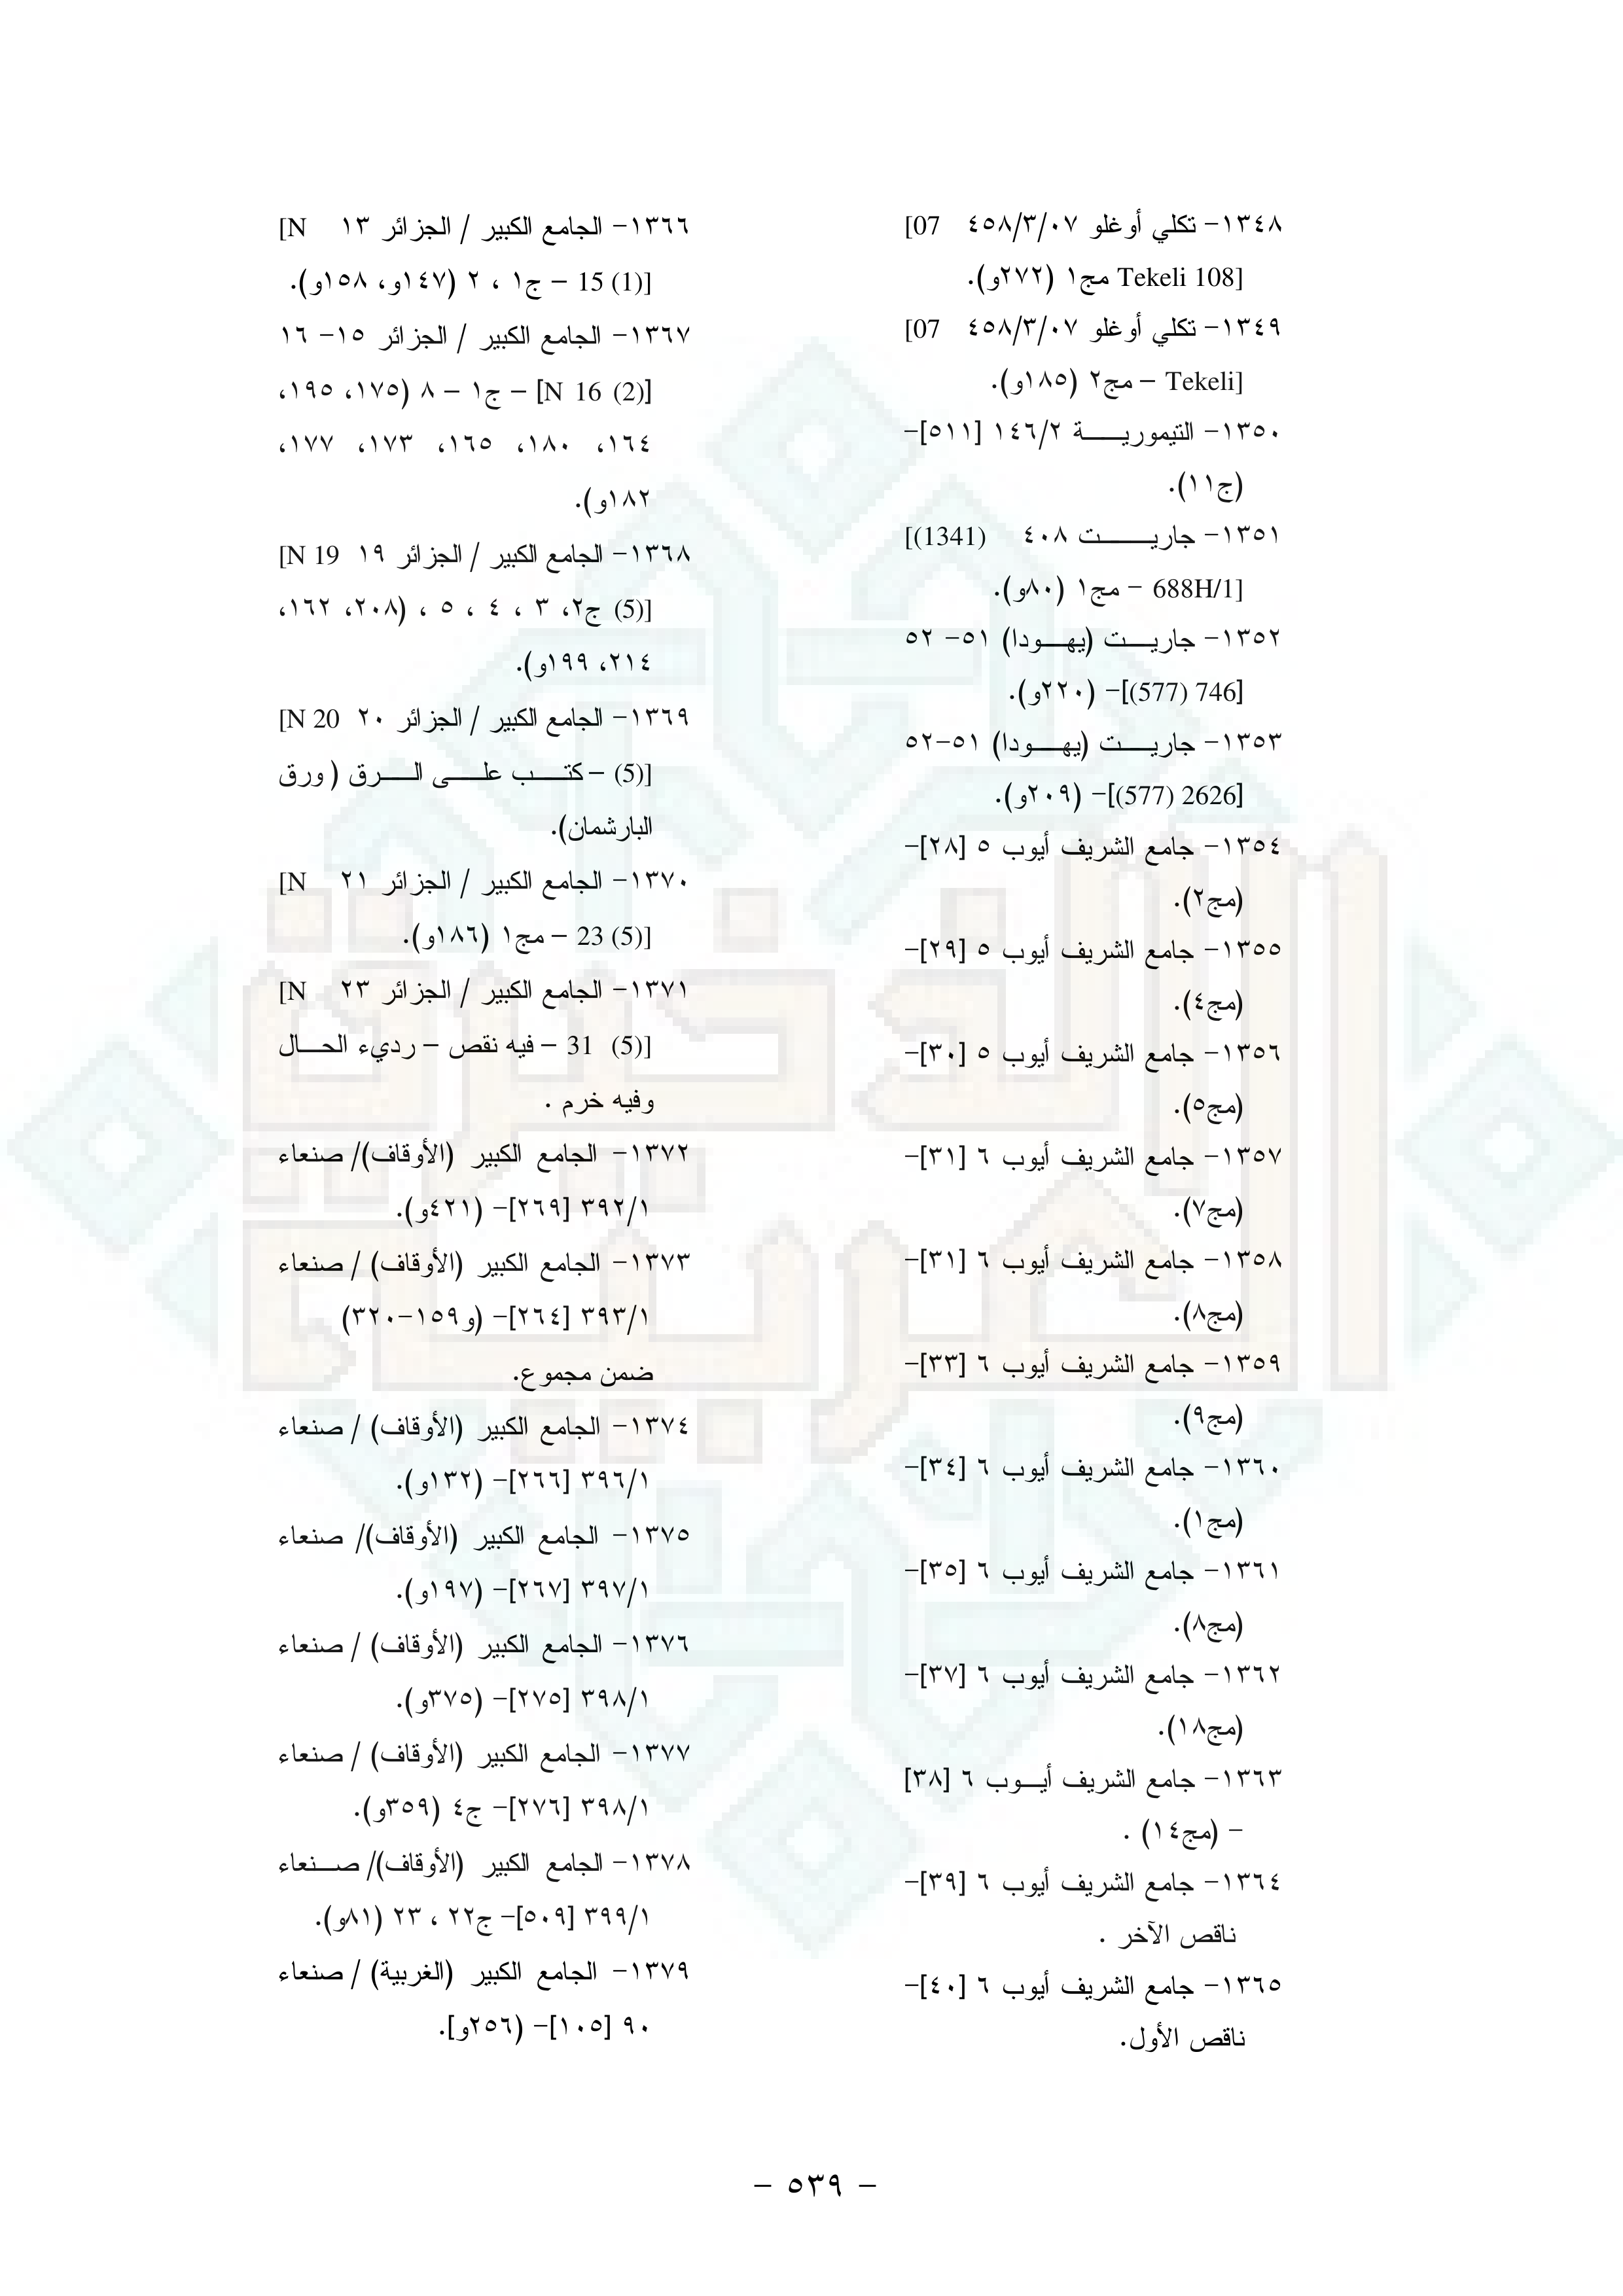 ١٣٤٨- تكلي أوغلو ٤٥٨/٣/٠٧ [07
Tekeli 108] مج١ (٢٧٢و).
١٣٤٩- تكلي أوغلو ٤٥٨/٣/٠٧ [07
Tekeli] – مج٢ (١٨٥و).
١٣٥٠- التيمورية ١٤٦/٢ [٥١١]-
(ج١١).
١٣٥١- جاريت ٤٠٨ [(1341)
688H/1] – مج١ (٨٠و).
١٣٥٢- جاريت (يهودا) ٥١- ٥٢
[746 (577)]- (٢٢٠و).
١٣٥٣- جاريت (يهودا) ٥١-٥٢
[2626 (577)]- (٢٠٩و).
١٣٥٤- جامع الشريف أيوب ٥ [٢٨]-
(مج٢).
١٣٥٥- جامع الشريف أيوب ٥ [٢٩]-
(مج٤).
١٣٥٦- جامع الشريف أيوب ٥ [٣٠]-
(مج٥).
١٣٥٧- جامع الشريف أيوب ٦ [٣١]-
(مج٧).
١٣٥٨- جامع الشريف أيوب ٦ [٣١]-
(مج٨).
١٣٥٩- جامع الشريف أيوب ٦ [٣٣]-
(مج٩).
١٣٦٠- جامع الشريف أيوب ٦ [٣٤]-
(مج١).
١٣٦١- جامع الشريف أيوب ٦ [٣٥]-
(مج٨).
١٣٦٢- جامع الشريف أيوب ٦ [٣٧]-
(مج١٨).
١٣٦٣- جامع الشريف أيوب ٦ [٣٨]
– (مج١٤) .
١٣٦٤- جامع الشريف أيوب ٦ [٣٩]-
ناقص الآخر .
١٣٦٥- جامع الشريف أيوب ٦ [٤٠]-
ناقص الأول.
١٣٦٦- الجامع الكبير / الجزائر ١٣ [N
15 (1)] – ج١ ، ٢ (١٤٧و، ١٥٨و).
١٣٦٧- الجامع الكبير / الجزائر ١٥- ١٦
[N 16 (2)] – ج١ – ٨ (١٧٥، ١٩٥،
١٦٤، ١٨٠، ١٦٥، ١٧٣، ١٧٧،
١٨٢و).
١٣٦٨- الجامع الكبير / الجزائر ١٩ [N 19
(5)] ج٢، ٣ ، ٤ ، ٥ ، (٢٠٨، ١٦٢،
٢١٤، ١٩٩و).
١٣٦٩- الجامع الكبير / الجزائر ٢٠ [N 20
(5)] – كتب على الرق ( ورق
البارشمان).
١٣٧٠- الجامع الكبير / الجزائر ٢١ [N
23 (5)] – مج١ (١٨٦و).
١٣٧١- الجامع الكبير / الجزائر ٢٣ [N
31 (5)] – فيه نقص – رديء الحال
وفيه خرم .
١٣٧٢- الجامع الكبير (الأوقاف)/ صنعاء
٣٩٢/١ [٢٦٩]- (٤٢١و).
١٣٧٣- الجامع الكبير (الأوقاف) / صنعاء
٣٩٣/١ [٢٦٤]- (و١٥٩-٣٢٠)
ضمن مجموع.
١٣٧٤- الجامع الكبير (الأوقاف) / صنعاء
٣٩٦/١ [٢٦٦]- (١٣٢و).
١٣٧٥- الجامع الكبير (الأوقاف)/ صنعاء
٣٩٧/١ [٢٦٧]- (١٩٧و).
١٣٧٦- الجامع الكبير (الأوقاف) / صنعاء
٣٩٨/١ [٢٧٥]- (٣٧٥و).
١٣٧٧- الجامع الكبير (الأوقاف) / صنعاء
٣٩٨/١ [٢٧٦]- ج٤ (٣٥٩و).
١٣٧٨- الجامع الكبير (الأوقاف)/ صنعاء
٣٩٩/١ [٥٠٩]- ج٢٢ ، ٢٣ (٨١و).
١٣٧٩- الجامع الكبير (الغربية) / صنعاء
٩٠ [١٠٥]- (٢٥٦و].
– ٥٣٩ –
الذخيرة
العربية